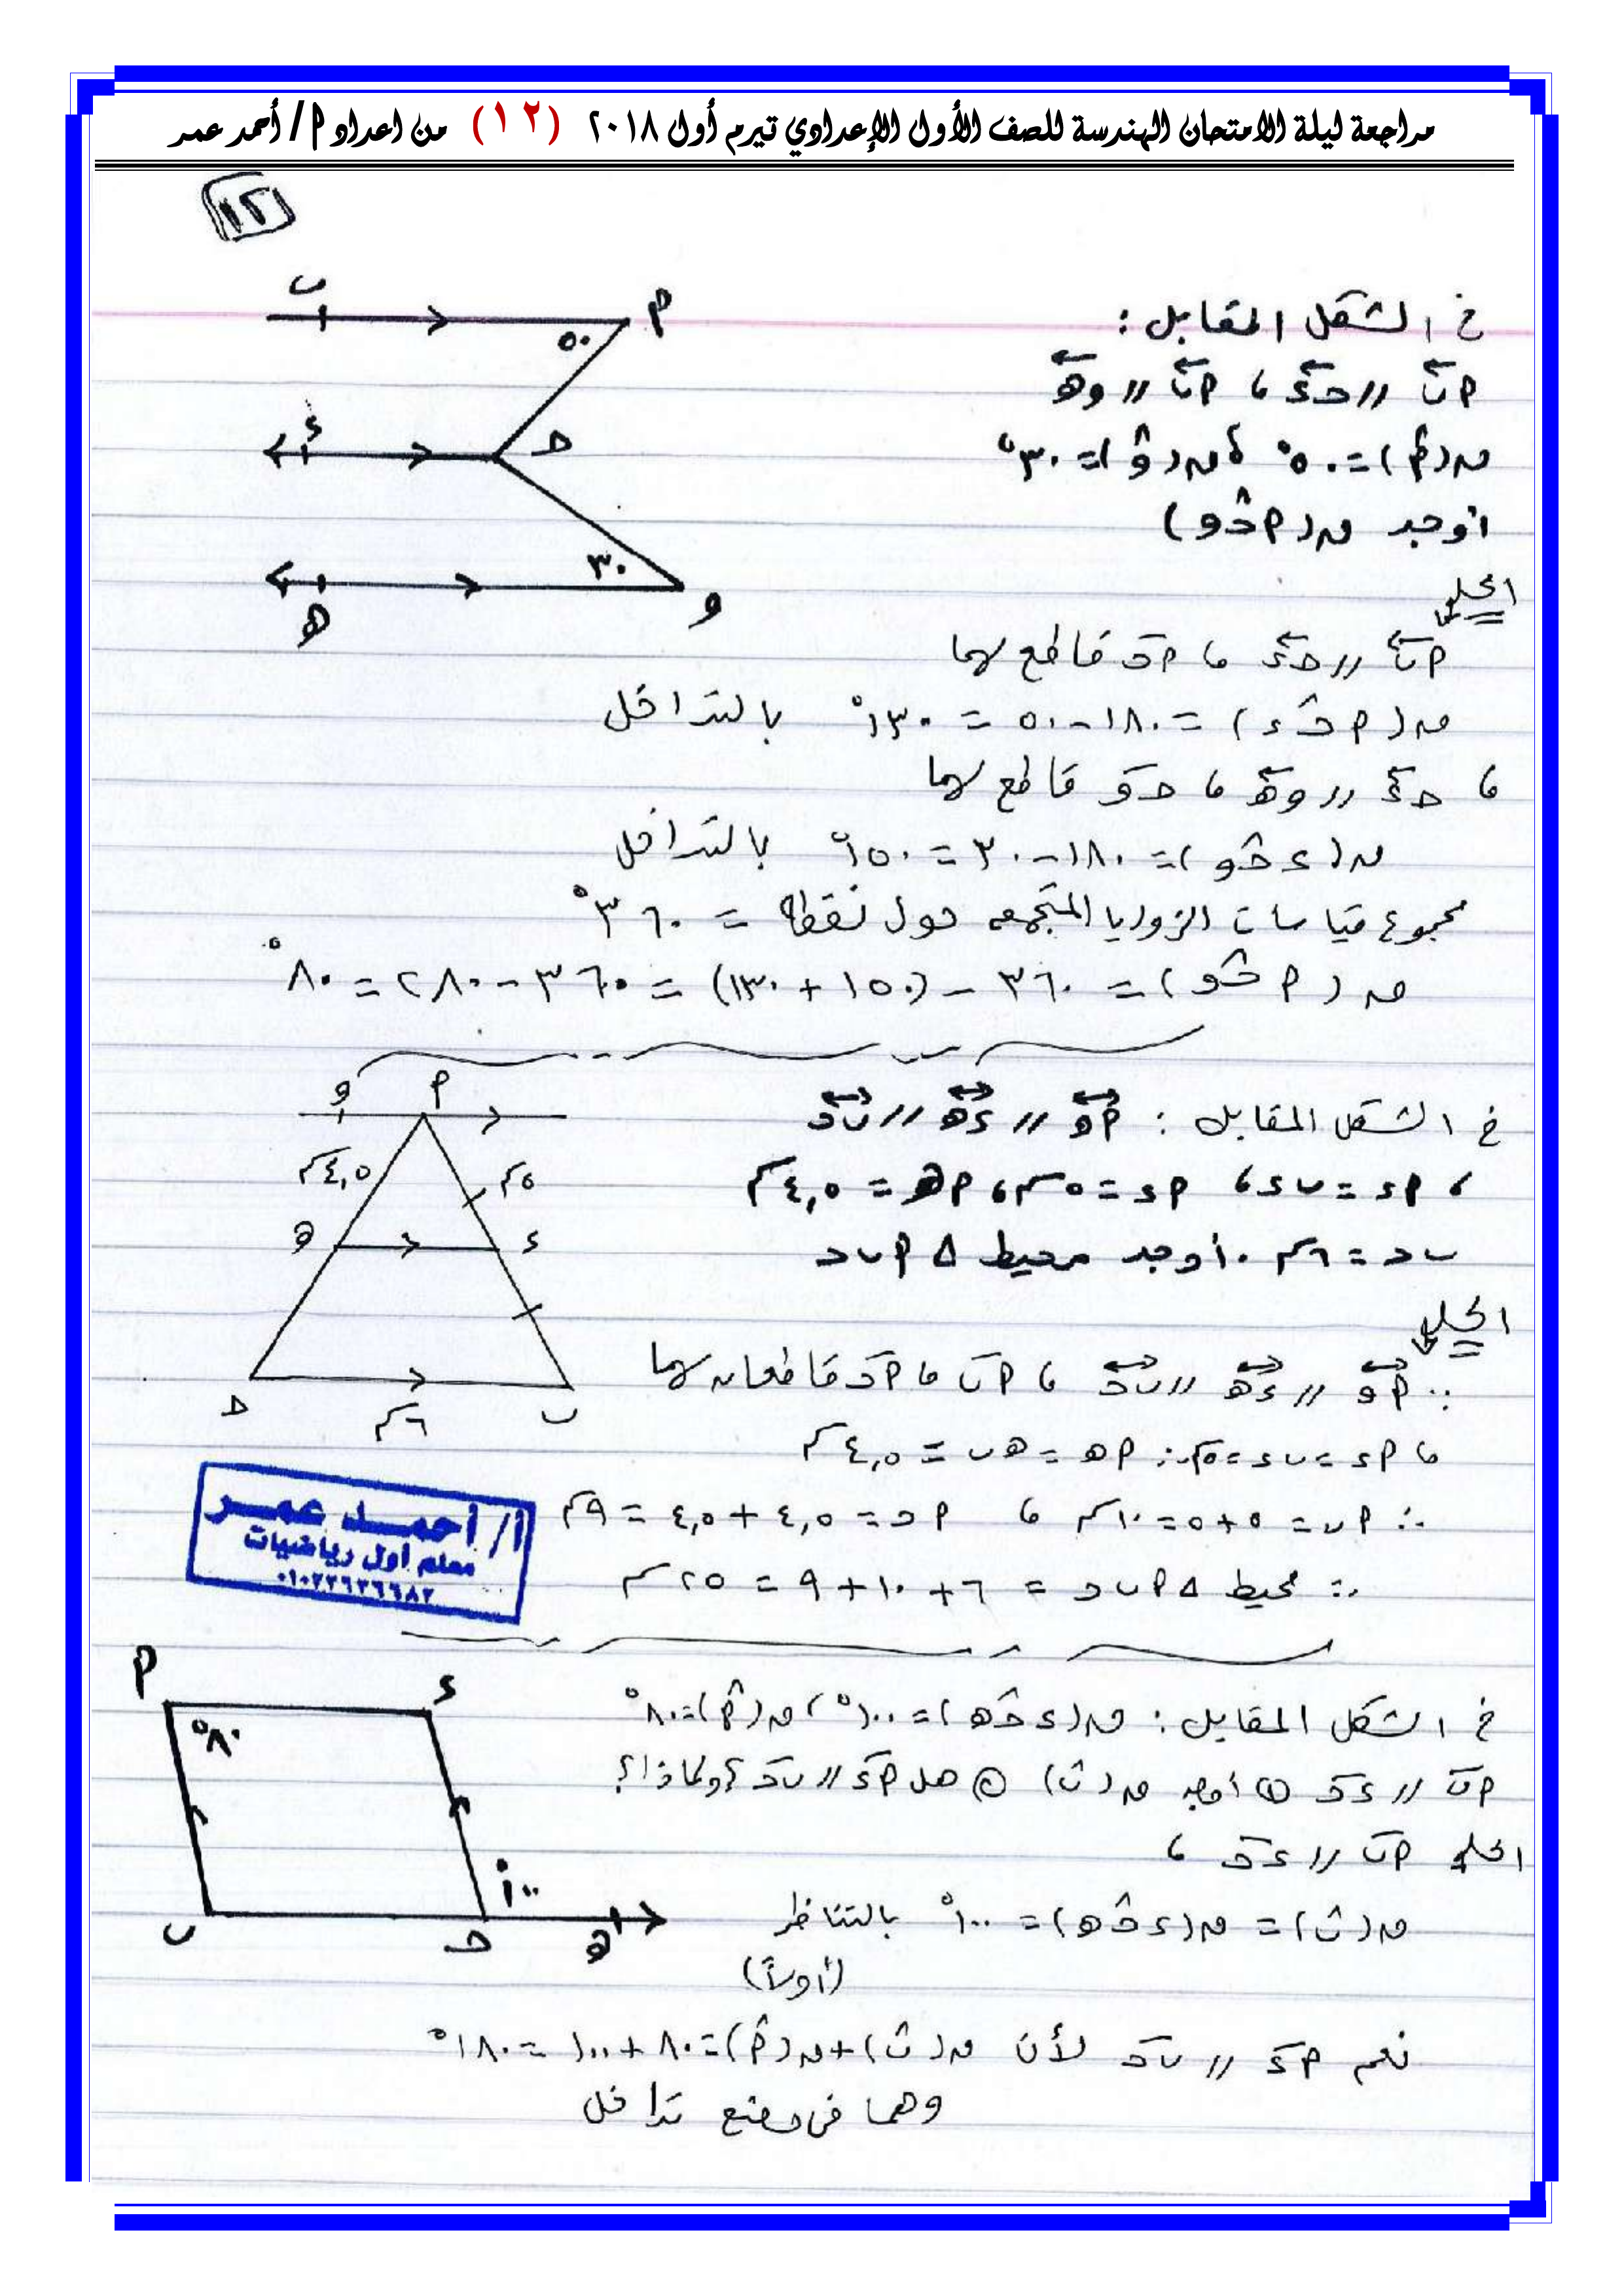 مراجعة ليلة الامتحان الهندسة للصف الأول الإعدادي تيرم أول ٢٠١٨ (١٢) من اعداد ٩/ أحمد عمر
١٢
في الشكل المقابل :
أب // حـ ء ، أب // و هـ
ب أ ٥٠
ء حـ
هـ و ٣٠
ق(أ) = ٥٠° ، ق(و) = ٣٠°
أوجد ق(أ حـ و)
الحل
أب // حـ ء ، أ حـ قاطع لهما
ق(أ حـ ء) = ١٨٠ - ٥٠ = ١٣٠° بالتداخل
، حـ ء // و هـ ، حـ و قاطع لهما
ق(ء حـ و) = ١٨٠ - ٣٠ = ١٥٠° بالتداخل
مجموع قياسات الزوايا المتجمعه حول نقطة = ٣٦٠°
ق(أ حـ و) = ٣٦٠ - (١٥٠ + ١٣٠) = ٣٦٠ - ٢٨٠ = ٨٠°
في الشكل المقابل : أ و // ء هـ // ب حـ
، أ ء = ب ء ، أ ء = ٥سم ، أ هـ = ٤,٥سم
ب حـ = ٦سم . أوجد محيط Δ أ ب حـ
و أ
٤,٥سم ٥سم
هـ ء
حـ ٦سم ب
الحل
∵ أ و // ء هـ // ب حـ ، أ ب ، أ حـ قاطعان لهما
، أ ء = ب ء = ٥سم ∴ أ هـ = هـ ب = ٤,٥سم
∴ أ ب = ٥ + ٥ = ١٠سم ، أ حـ = ٤,٥ + ٤,٥ = ٩سم
∴ محيط Δ أ ب حـ = ٦ + ١٠ + ٩ = ٢٥سم
أ/ أحمد عمر
معلم أول رياضيات
٠١٠٢٢٦٢٦٦٨٢
أ ء
٨٠°
١٠٠
ب حـ هـ
في الشكل المقابل : ق(ء حـ هـ) = ١٠٠° ، ق(أ) = ٨٠°
أب // ء حـ ① أوجد ق(ب) ② هل أ ء // ب حـ ؟ ولماذا؟
الحل أب // ء حـ ،
ق(ب) = ق(ء حـ هـ) = ١٠٠° بالتناظر
(أولاً)
نعم أ ء // ب حـ لأن ق(ب) + ق(أ) = ٨٠ + ١٠٠ = ١٨٠°
وهما في وضع تداخل